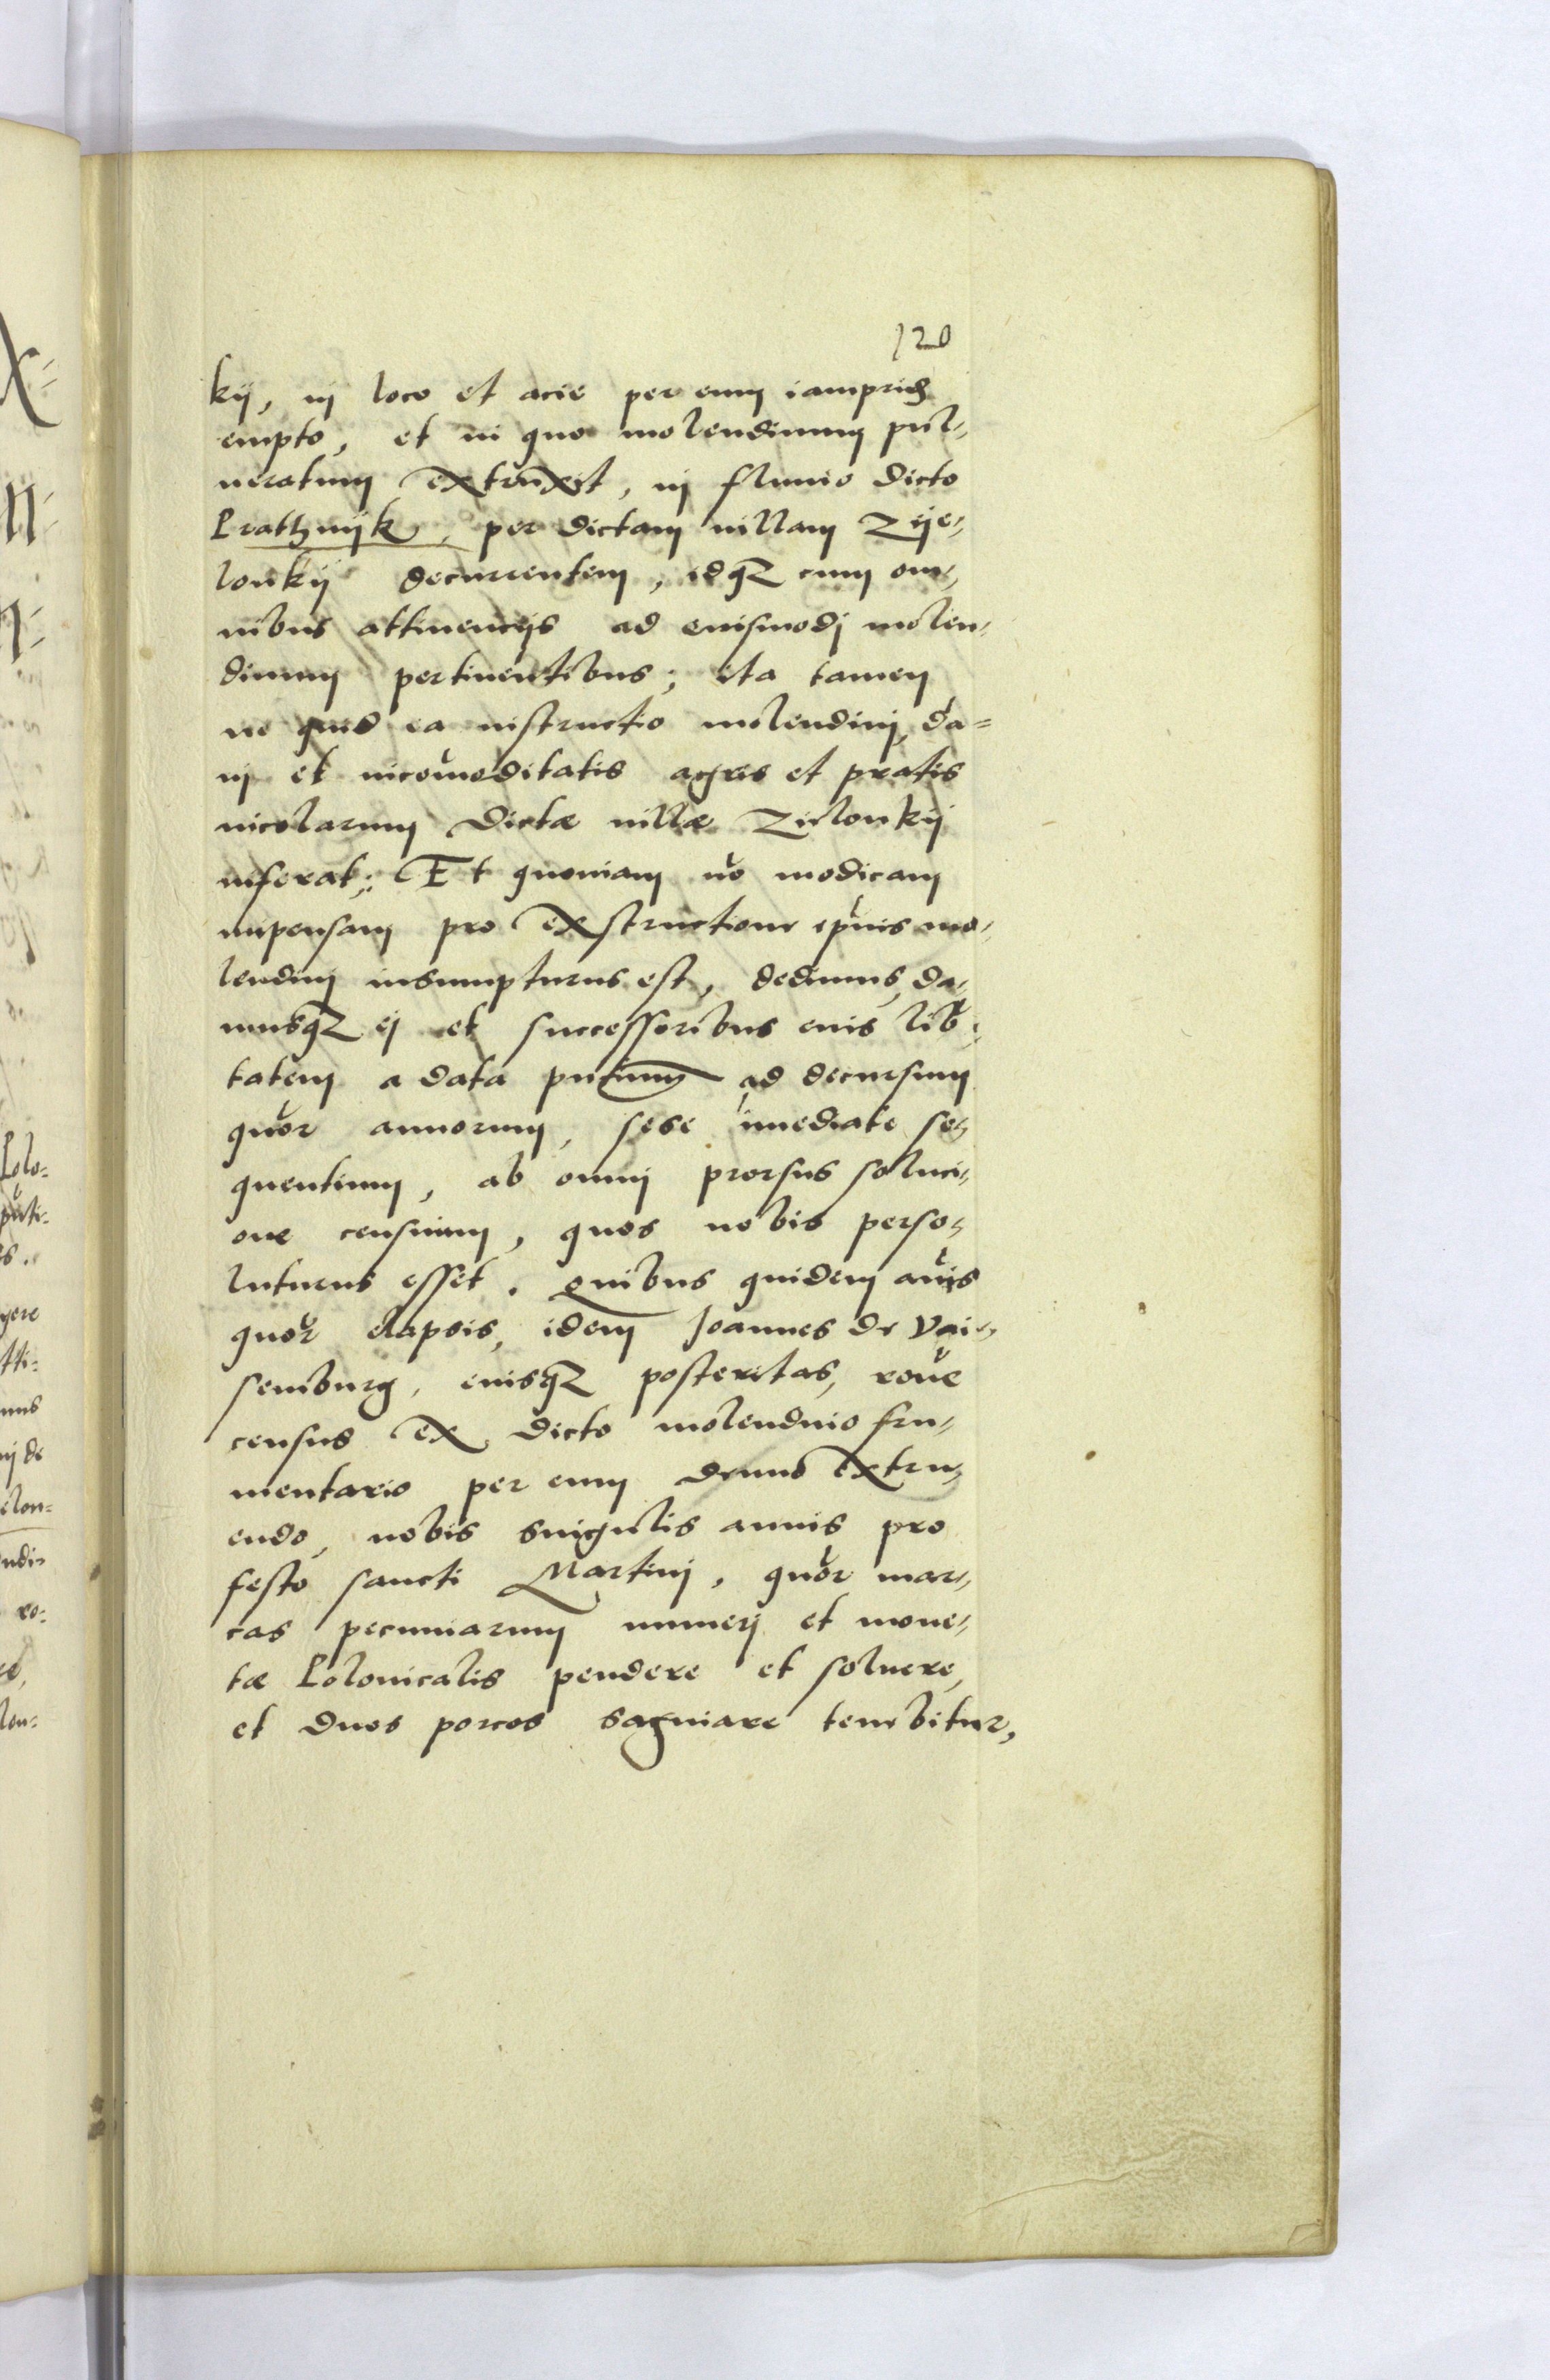 120
kij, in loco et acie per eum iamprid
empto, et in quo molendinum pul-
ueratum extruxit, in fluuio dicto
Prathnijk, per dictam uillam Zije-
lonkij decurrentem, idq3 cum om-
nibus attinencijs ad euismodj molen-
dinum pertinentibus; ita tamen
ne quid ea instructio molendinj, da=
nj et incomoditatis agris et pratis
incolarum dictæ uillæ Zielonkij
inferat; Et quoniam no modicam
impensam pro exstructione ipsius mo-
lendinj insumpturus est, dedimus, da-
musq3 ej et successoribus euis lib-
tatem a data pntium ad decursum
quor annorum, sese imediate se-
quentium, ab omnj prorsus soluci-
one censuum, quos nobis perso-
luturus esset. Quibus quidem anis
quor elapsis, idem Joannes de Vai-
semburg, euisq3 posteritas, rone
census ex dicto molendino fru-
mentario per eum denuo extru-
endo, nobis singulis annis pro
festo sancti Martinj, quor mar-
cas pecuniarum numerj et mone-
tæ Polonicalis pendere et soluere,
et duos porcos saginare tenebitur,
Polo-